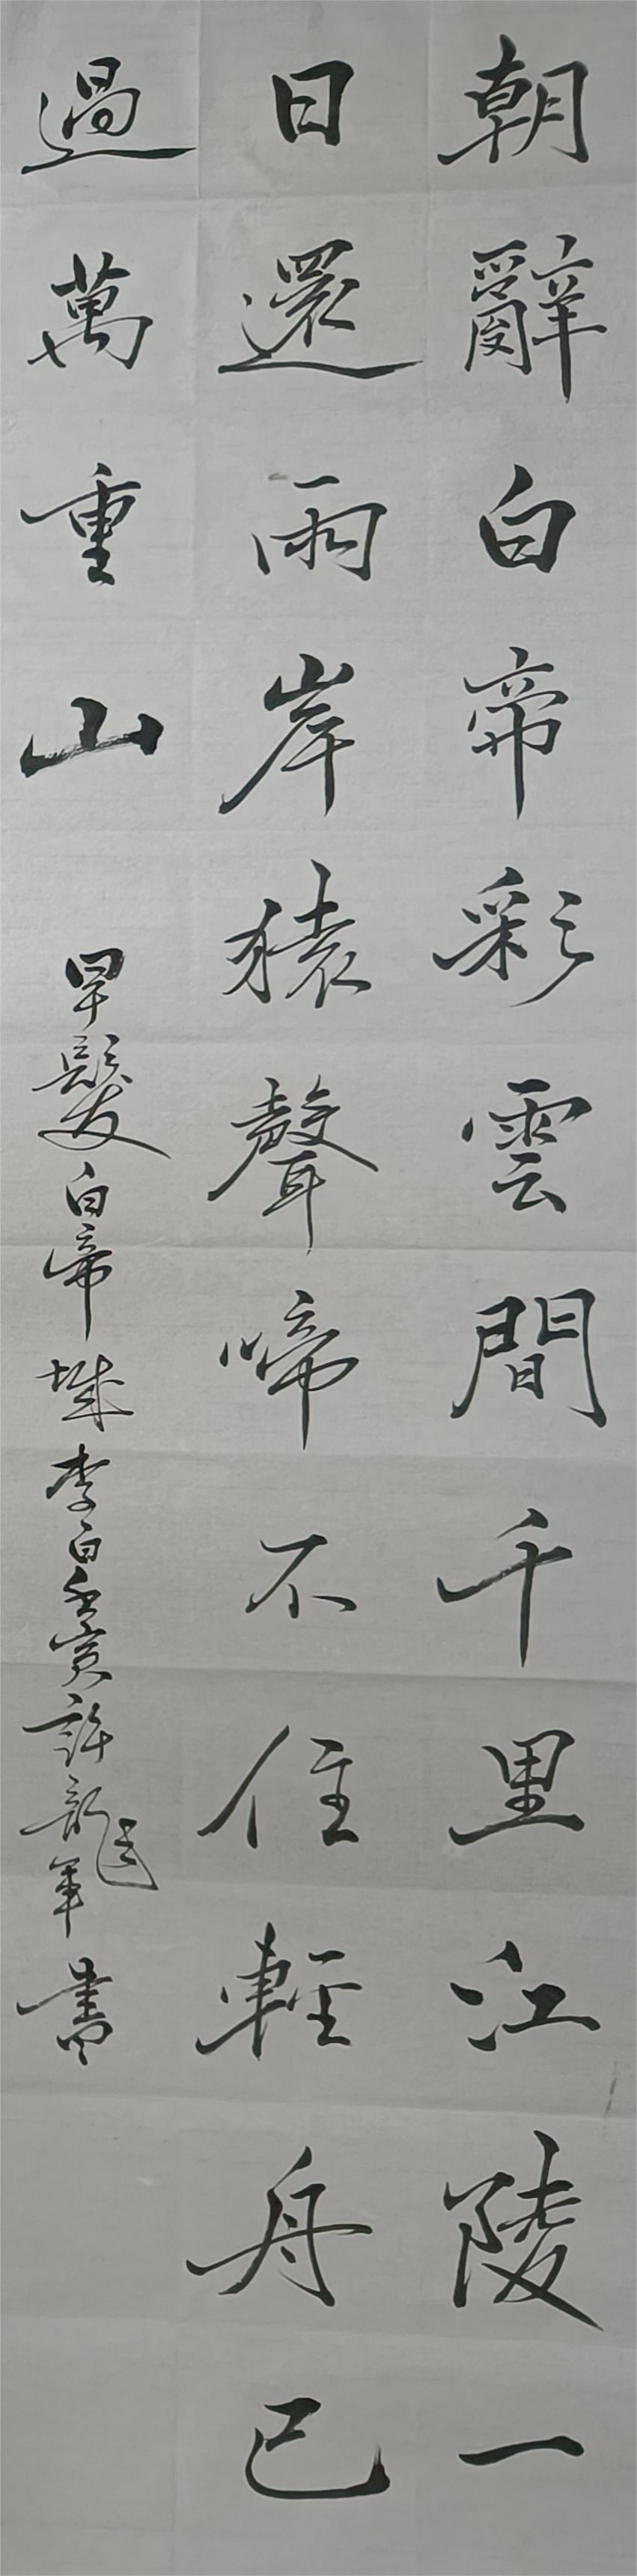 朝辭白帝彩雲間千里江陵一
日還兩岸猿聲啼不住輕舟已
過萬重山
早髮白帝城李白寅許龍軍書